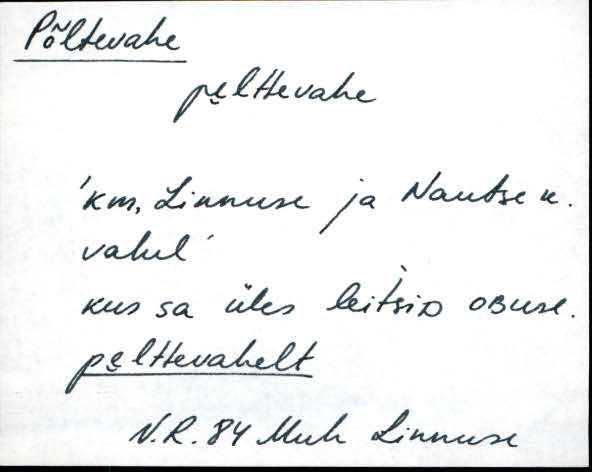 Põltevahe
pe̮lttevahe
'km, Linnuse ja Nautse k.
vahel'
kus sa üles leitsid obuse.
pe̮lttevahelt
N.R. 84 Muh Linnuse